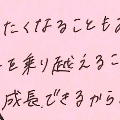 たくなることもあ
を乗り越えるこ
成長できるから